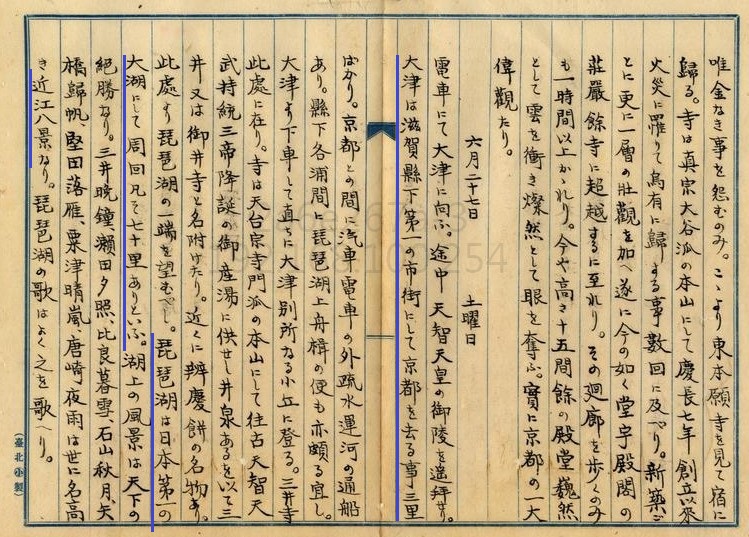 唯金なき事を怨むのみ。こゝより東本願寺を見て宿に
歸る。寺は真宗大谷派の本山にして慶長七年創立以來
火災に罹りて烏有に歸する事數回に及べり。新築ご
とに更に一層の壯觀を加へ遂に今の如く堂宇殿閣の
莊嚴餘寺に超越するに至れり。その廻廊を歩くのみ
も一時間以上かゝれり。今や高さ十五間餘の殿堂巍然
として雲を衝き燦然として眼を奪ふ。實に京都の一大
偉觀たり。
六月二十七日 土曜日
電車にて大津に向ふ。途中天智天皇の御陵を遥拜せり。
大津は滋賀縣下第一の市街にして京都を去る事三里
ばかり。京都との間に汽車電車の外疏水運河の通船
あり。縣下各浦間に琵琶湖上舟楫の便も亦頗る宜し。
大津より下車して直ちに大津別所なる小丘に登る。三井寺
此處に在り。寺は天台宗寺門派の本山にして往古天智天
武持統三帝降誕の御産湯に供せし井泉あるを以て三
井又は御井寺と名附けたり。近くに辨慶餅の名物あり。
此處より琵琶湖の一端を望むべし。琵琶湖は日本第一の
大湖にして周回凡そ七十里ありといふ。湖上の風景は天下の
絕勝なり。三井晩鐘瀬田夕照比良暮雪石山秋月、矢
橋歸帆堅田落雁、粟津晴嵐、唐崎夜雨は世に名高
き近江八景なり。琵琶湖の歌はよく之を歌へり。
(臺北小製)